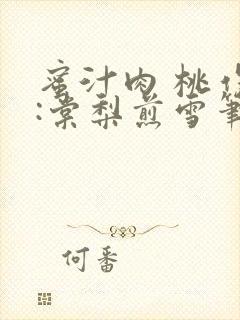 蜜汁肉桃作
:棠梨煎雪笔
何番